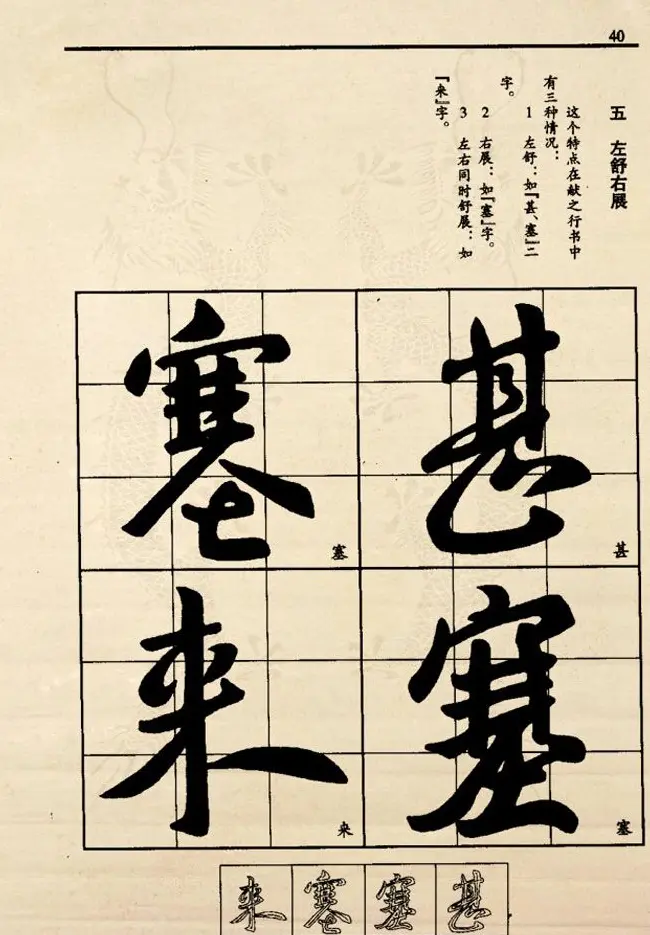 40
五 左舒右展
这个特点在献之行书中
有三种情况：
1 左舒：如『甚、塞』二
字。
2 右展：如『塞』字。
3 左右同时舒展：如
『来』字。
甚
甚
塞
塞
塞
塞
来
来
来 塞 塞 甚